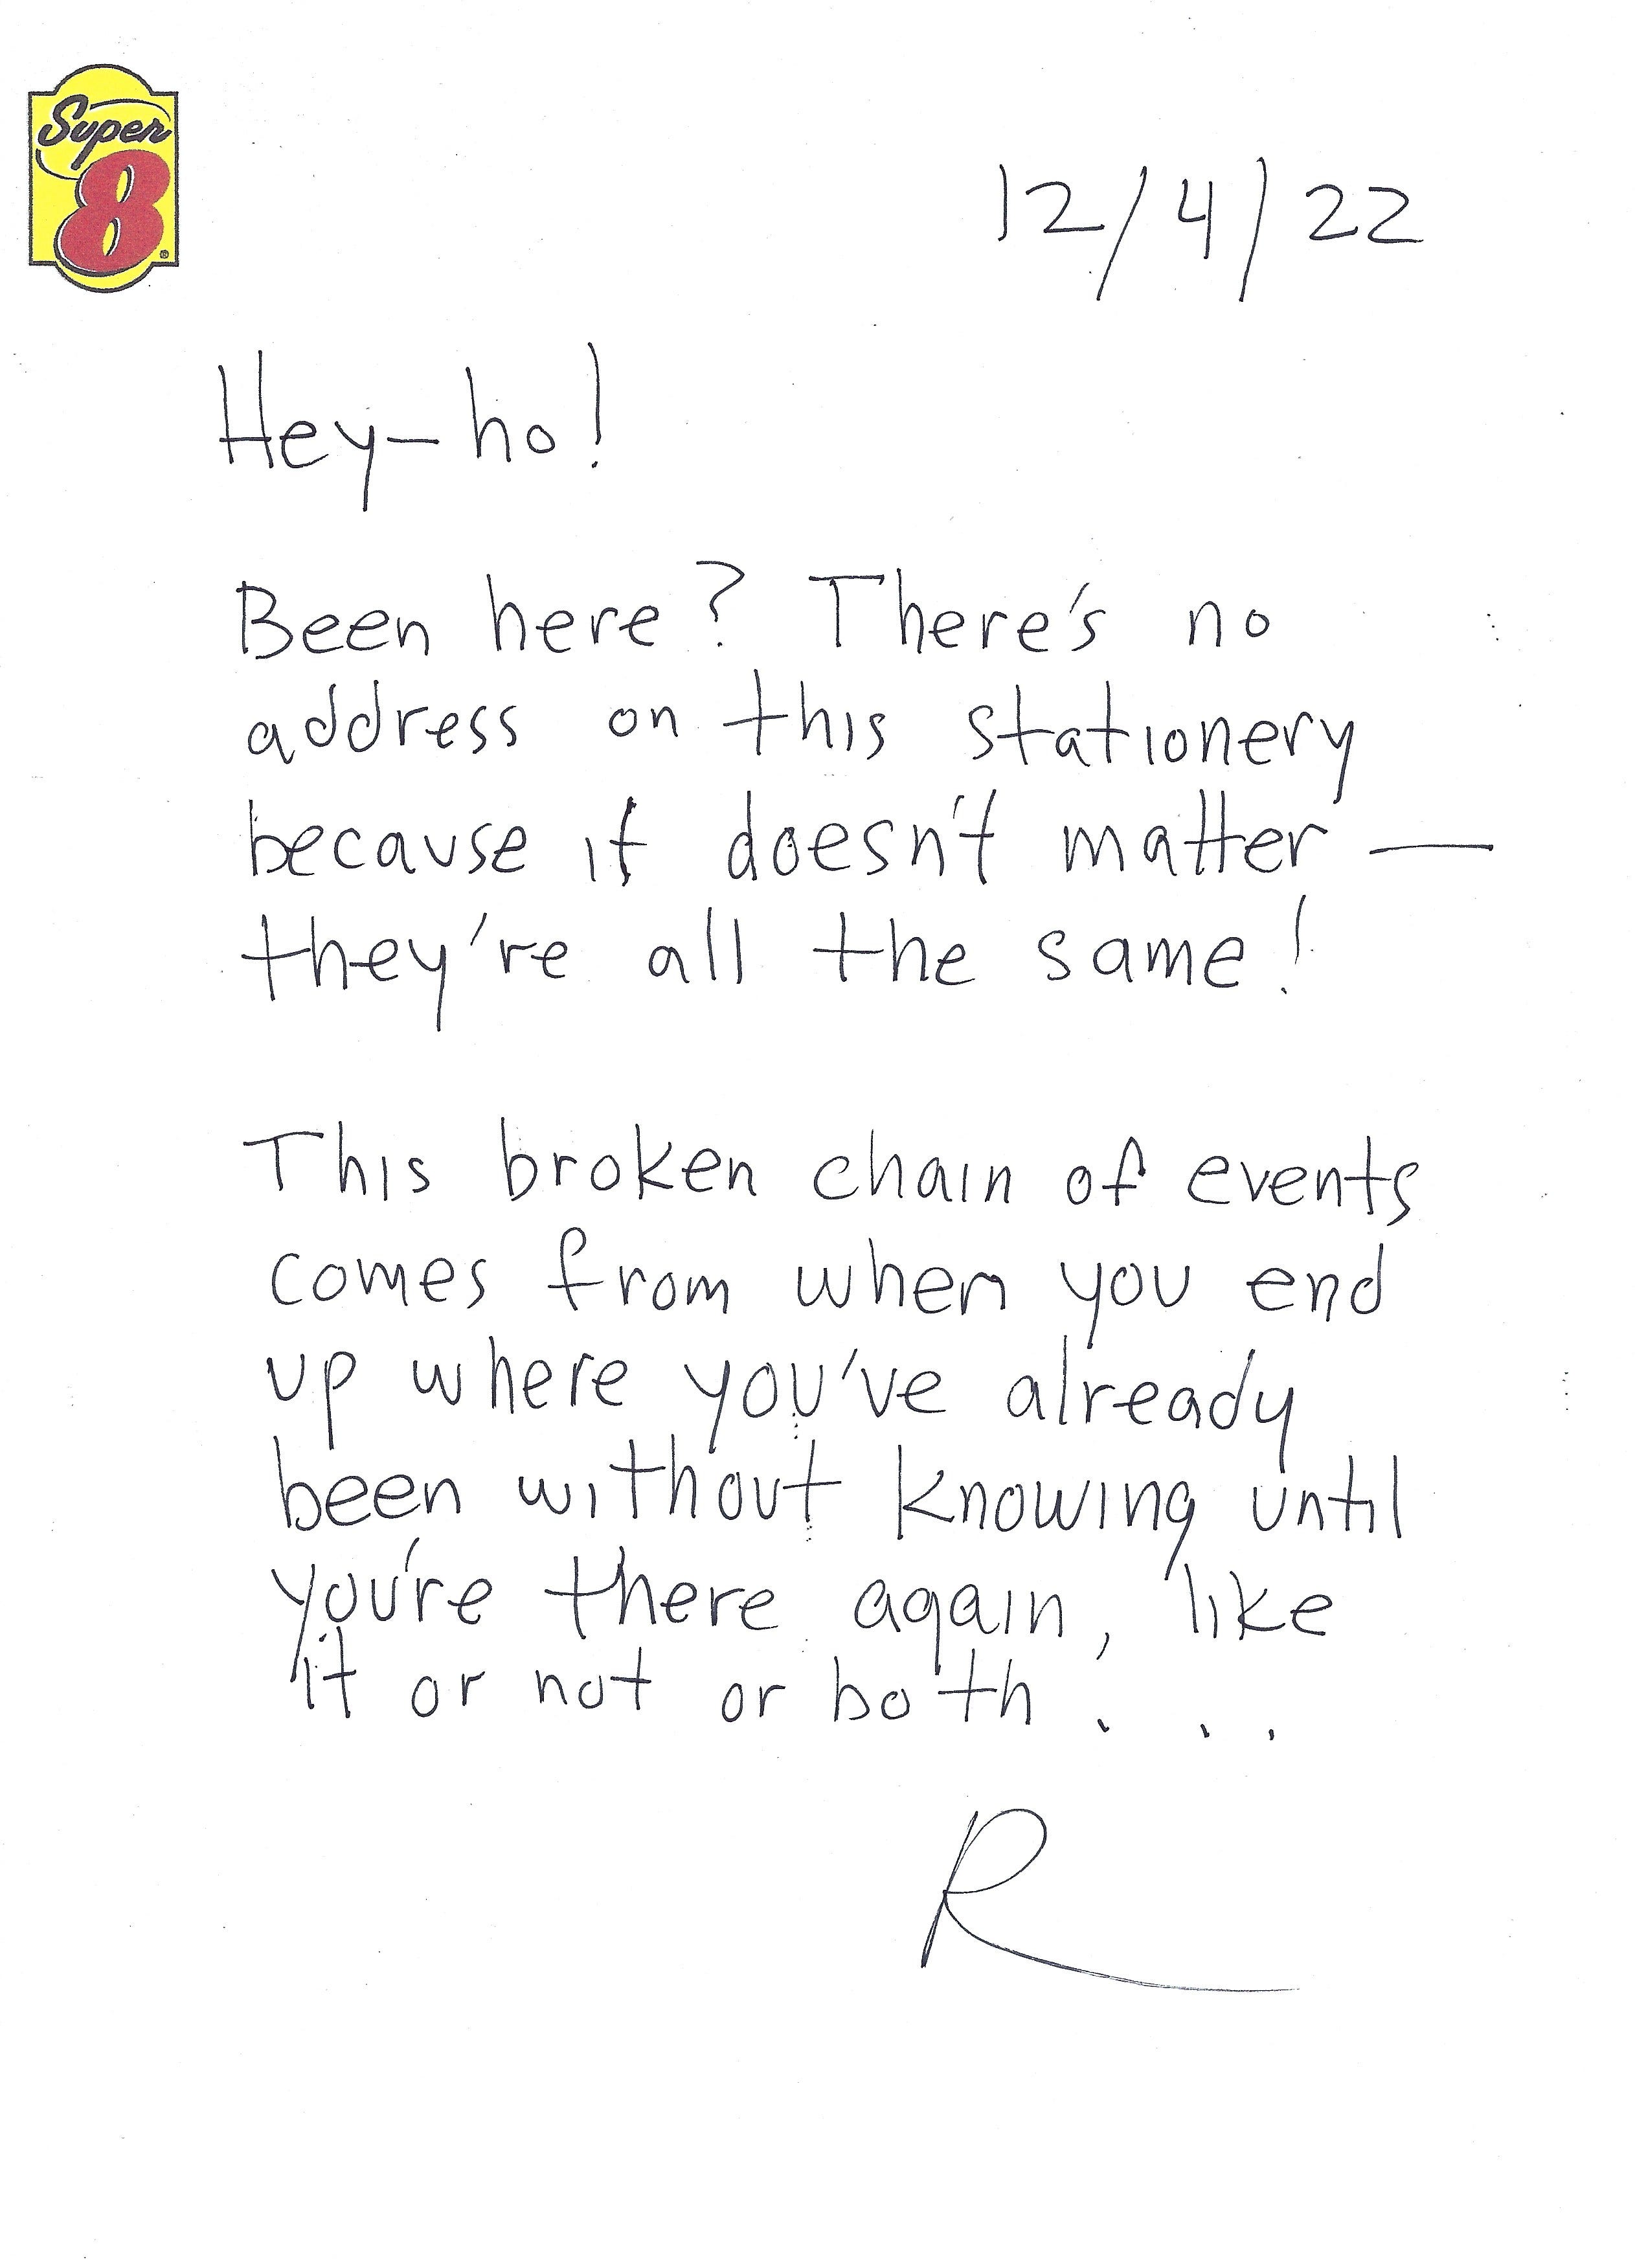 Super
8
12/4/22
Hey-ho!
Been here? There's no
address on this stationery
because it doesn't matter —
they're all the same!
This broken chain of events
comes from when you end
up where you've already
been without knowing until
you're there again, like
it or not or both...
R